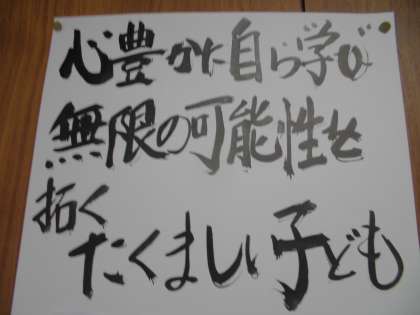 心豊かに自ら学び
無限の可能性を
拓く
たくましい子ども